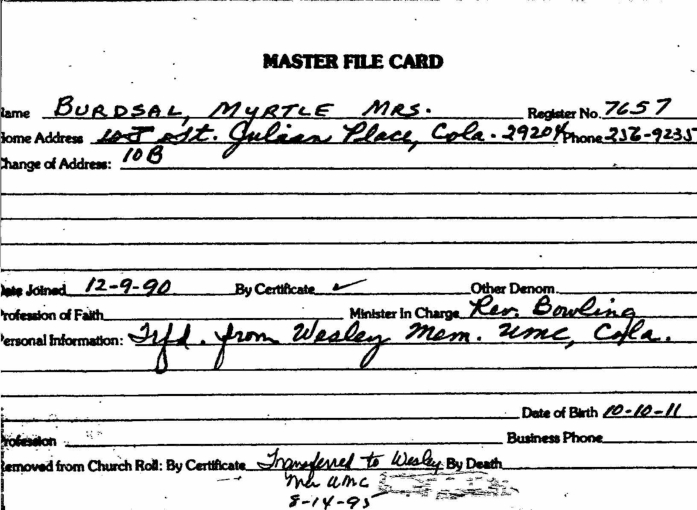 MASTER FILE CARD
ame BURDSAL, MYRTLE MRS. Register No. 7657
ome Address St. Julian Place, Cola. 29204 Phone 256-9235
hange of Address: 10B
Date Joined 12-9-90 By Certificate ✓ Other Denom.
rofession of Faith Minister In Charge Rev. Bowling
ersonal Information: Trfd. from Wesley Mem. UMC, Cola.
Date of Birth 10-10-11
rofession Business Phone
emoved from Church Roll: By Certificate Transferred to Wesley By Death
UMC
8-14-95